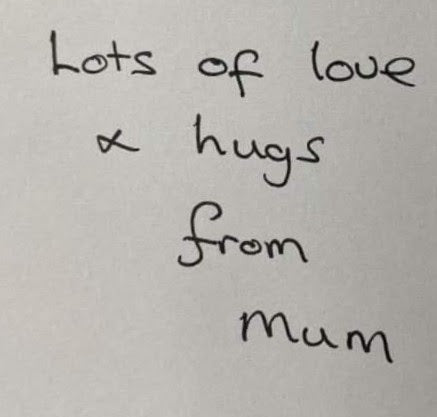 Lots of love
& hugs
from
mum